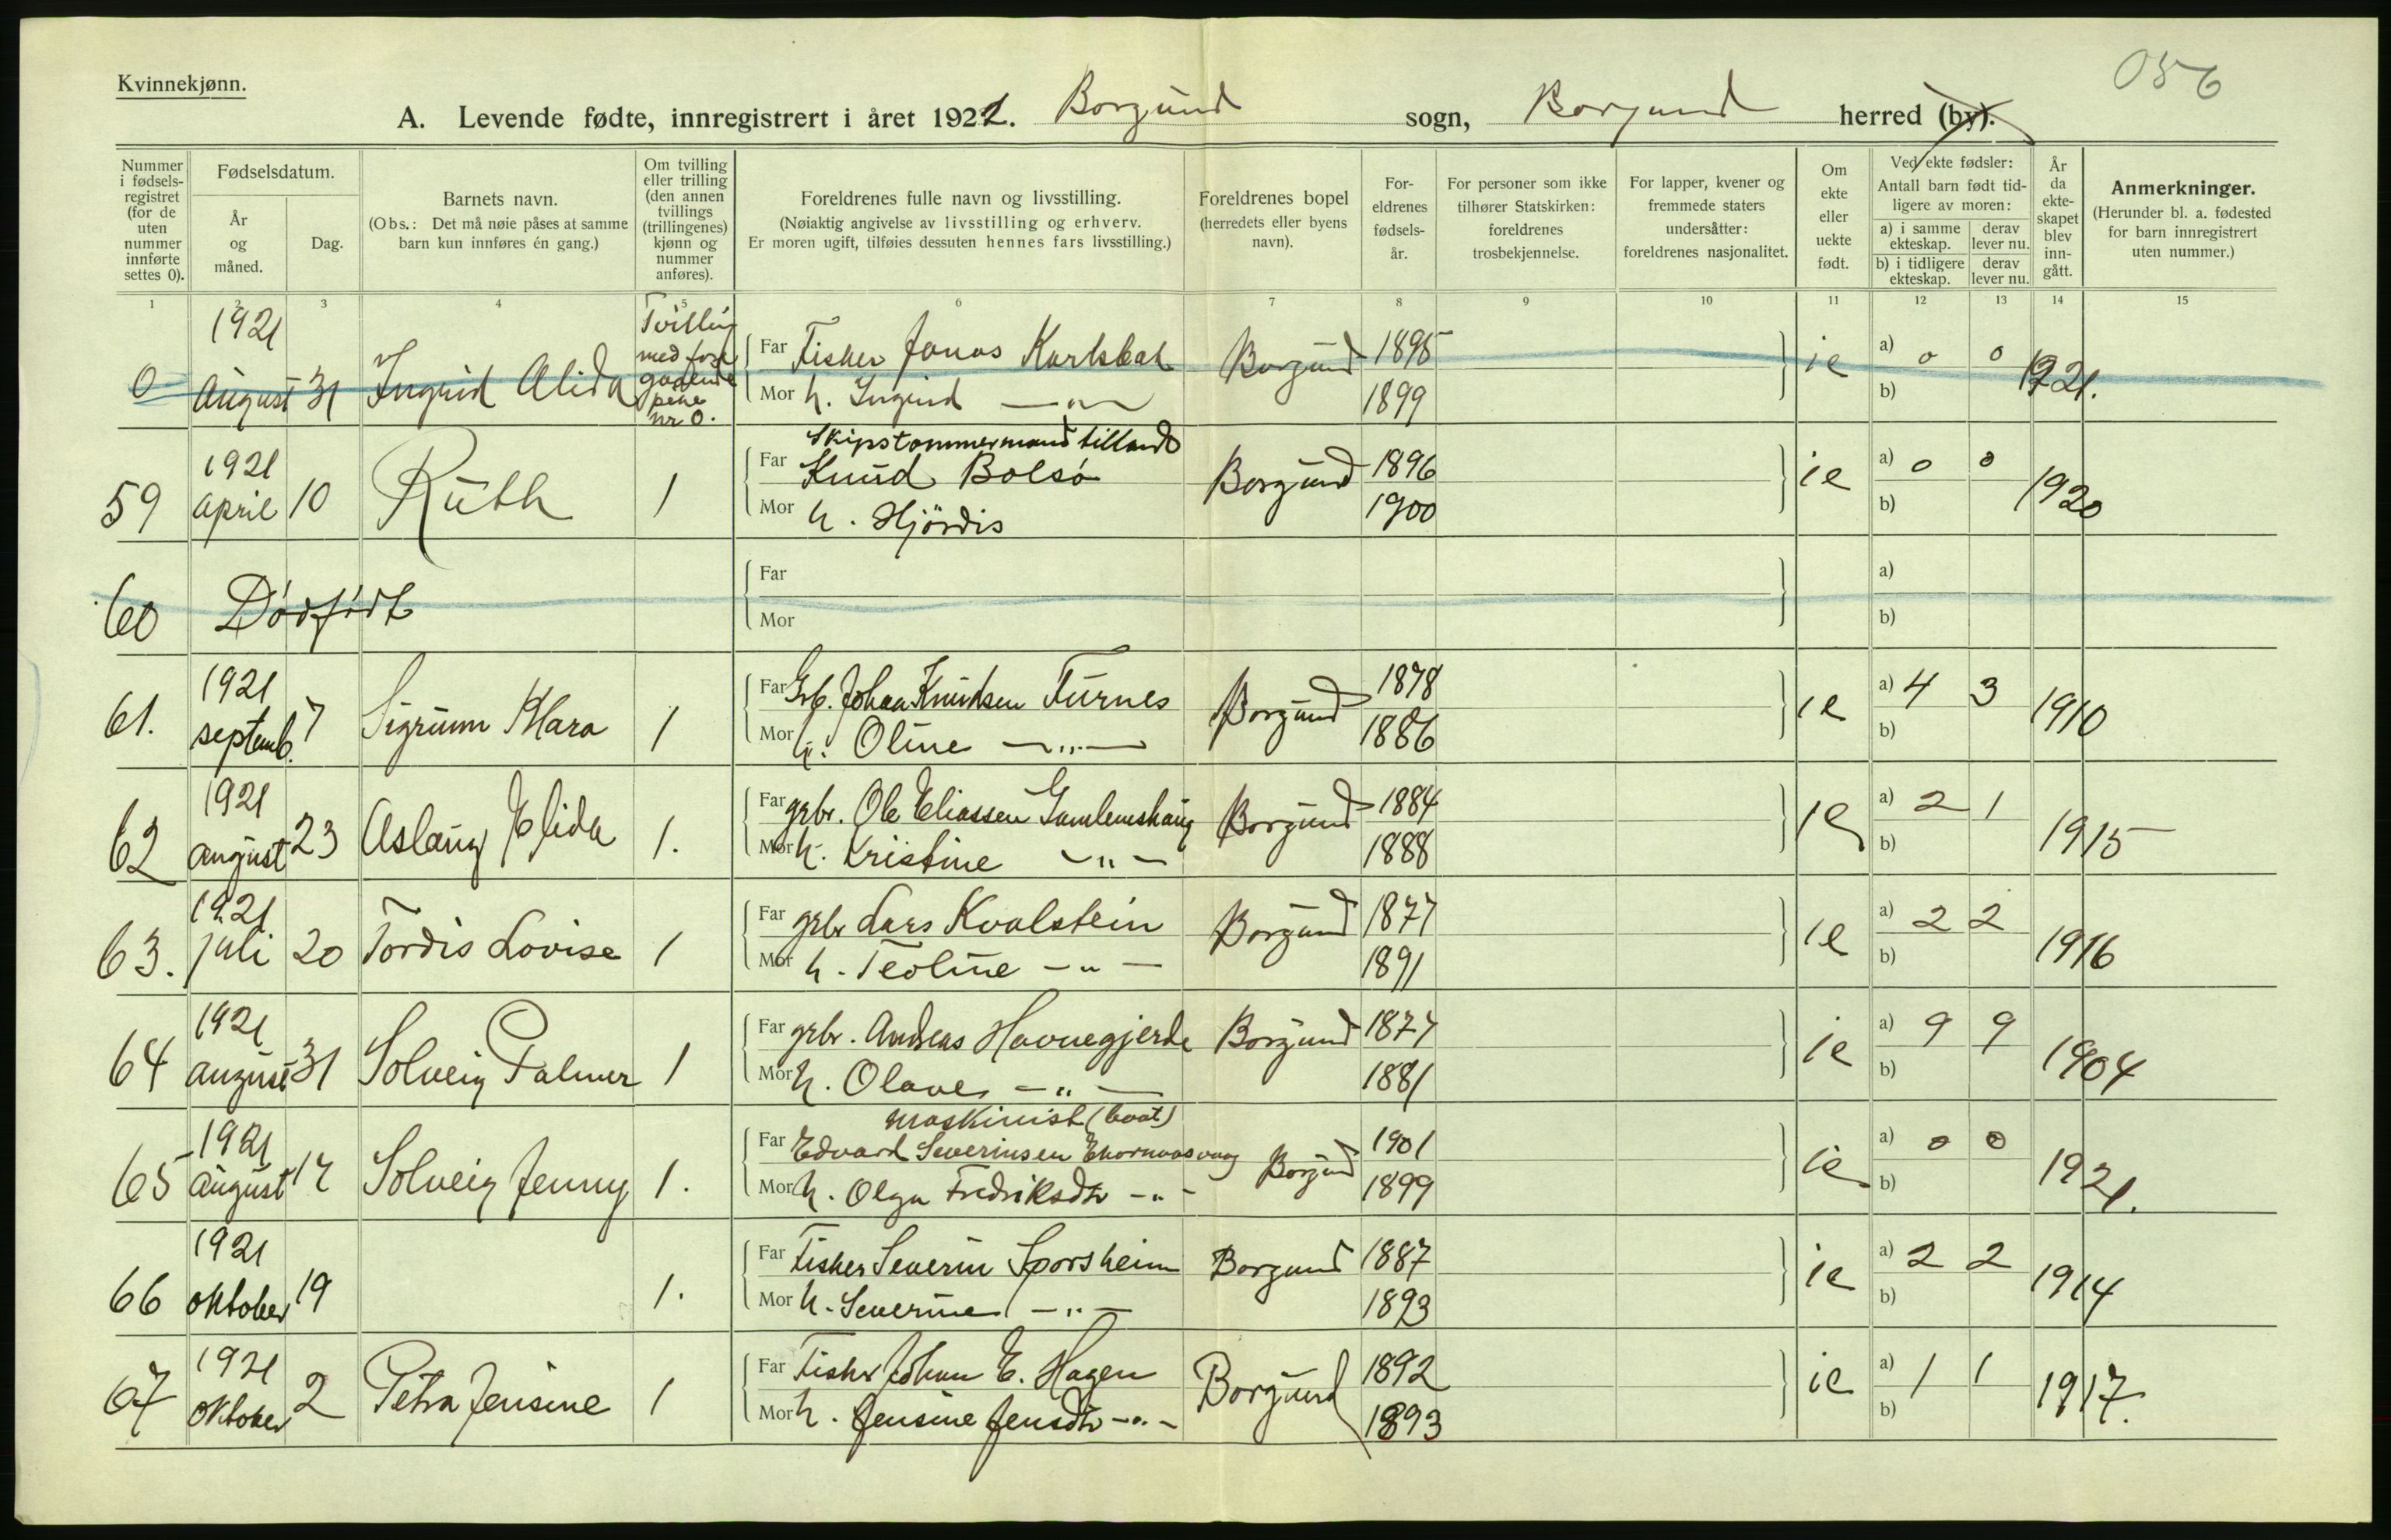 056
Kvinnekjønn.
A. Levende fødte, innregistrert i året 1921. Borgund sogn, Borgund herred (by).
Nummer i fødselsregistret (for de uten nummer innførte settes 0).
Fødselsdatum.
År og måned.
Dag.
Barnets navn.
(Obs.: Det må nøie påses at samme barn kun innføres én gang.)
Om tvilling eller trilling (den annen tvillings (trillingenes) kjønn og nummer anføres).
Foreldrenes fulle navn og livsstilling.
(Nøiaktig angivelse av livsstilling og erhverv.
Er moren ugift, tilføies dessuten hennes fars livsstilling.)
Foreldrenes bopel (herredets eller byens navn).
Foreldrenes fødselsår.
For personer som ikke tilhører Statskirken: foreldrenes trosbekjennelse.
For lapper, kvener og fremmede staters undersåtter: foreldrenes nasjonalitet.
Om ekte eller uekte født.
Ved ekte fødsler:
Antall barn født tidligere av moren:
a) i samme ekteskap. derav lever nu.
b) i tidligere ekteskap. derav lever nu.
År da ekteskapet blev inngått.
Anmerkninger.
(Herunder bl. a. fødested for barn innregistrert uten nummer.)
1 2 3 4 5 6 7 8 9 10 11 12 13 14 15
0 1921 August 31 Ingrid Alida Tvilling med nr 0. Far Fisker Jonas Borgund 1895 ie a) 0 0 1921.
Mor h. Ingrid —"— 1899 b)
59 1921 april 10 Ruth 1 Skipstømmermand tillands
Far Knud Bolsö Borgund 1896 ie a) 0 0 1920
Mor h. Hjördis 1900 b)
60 Dødfødt Far a)
Mor b)
61. 1921 septemb. 7 Sigrunn Klara 1 Far Grb. Johan Knutsen Furnes Borgund 1878 ie a) 4 3 1910
Mor h. Oline —"— 1886 b)
62 1921 august 23 Aslaug Elida 1. Far grbr. Ole Eliassen Gamlemshaug Borgund 1884 ie a) 2 1 1915
Mor h. Kristine —"— 1888 b)
63. 1921 juli 20 Tordis Lovise 1 Far grbr Lars Kvalstein Borgund 1877 ie a) 2 2 1916
Mor h. Teoline —"— 1891 b)
64 1921 august 31 Solveig Palmer 1 Far grbr. Andreas Havnegjerde Borgund 1877 ie a) 9 9 1904
Mor h. Olave —"— 1881 b)
65 1921 august 17 Solveig Jenny 1. maskinist (baat)
Far Edvard Severinsen Borgund 1901 ie a) 0 0 1921.
Mor h. Olga Fredriksdtr —"— 1899 b)
66 1921 oktober 19 1. Far Fisker Severin Sporsheim Borgund 1887 ie a) 2 2 1914
Mor h. Severine —"— 1893 b)
67 1921 oktober 2 Petra Jensine 1 Far Fisker Johan E. Hagen Borgund 1892 ie a) 1 1 1917.
Mor h. Jensine Jensdtr —"— 1893 b)